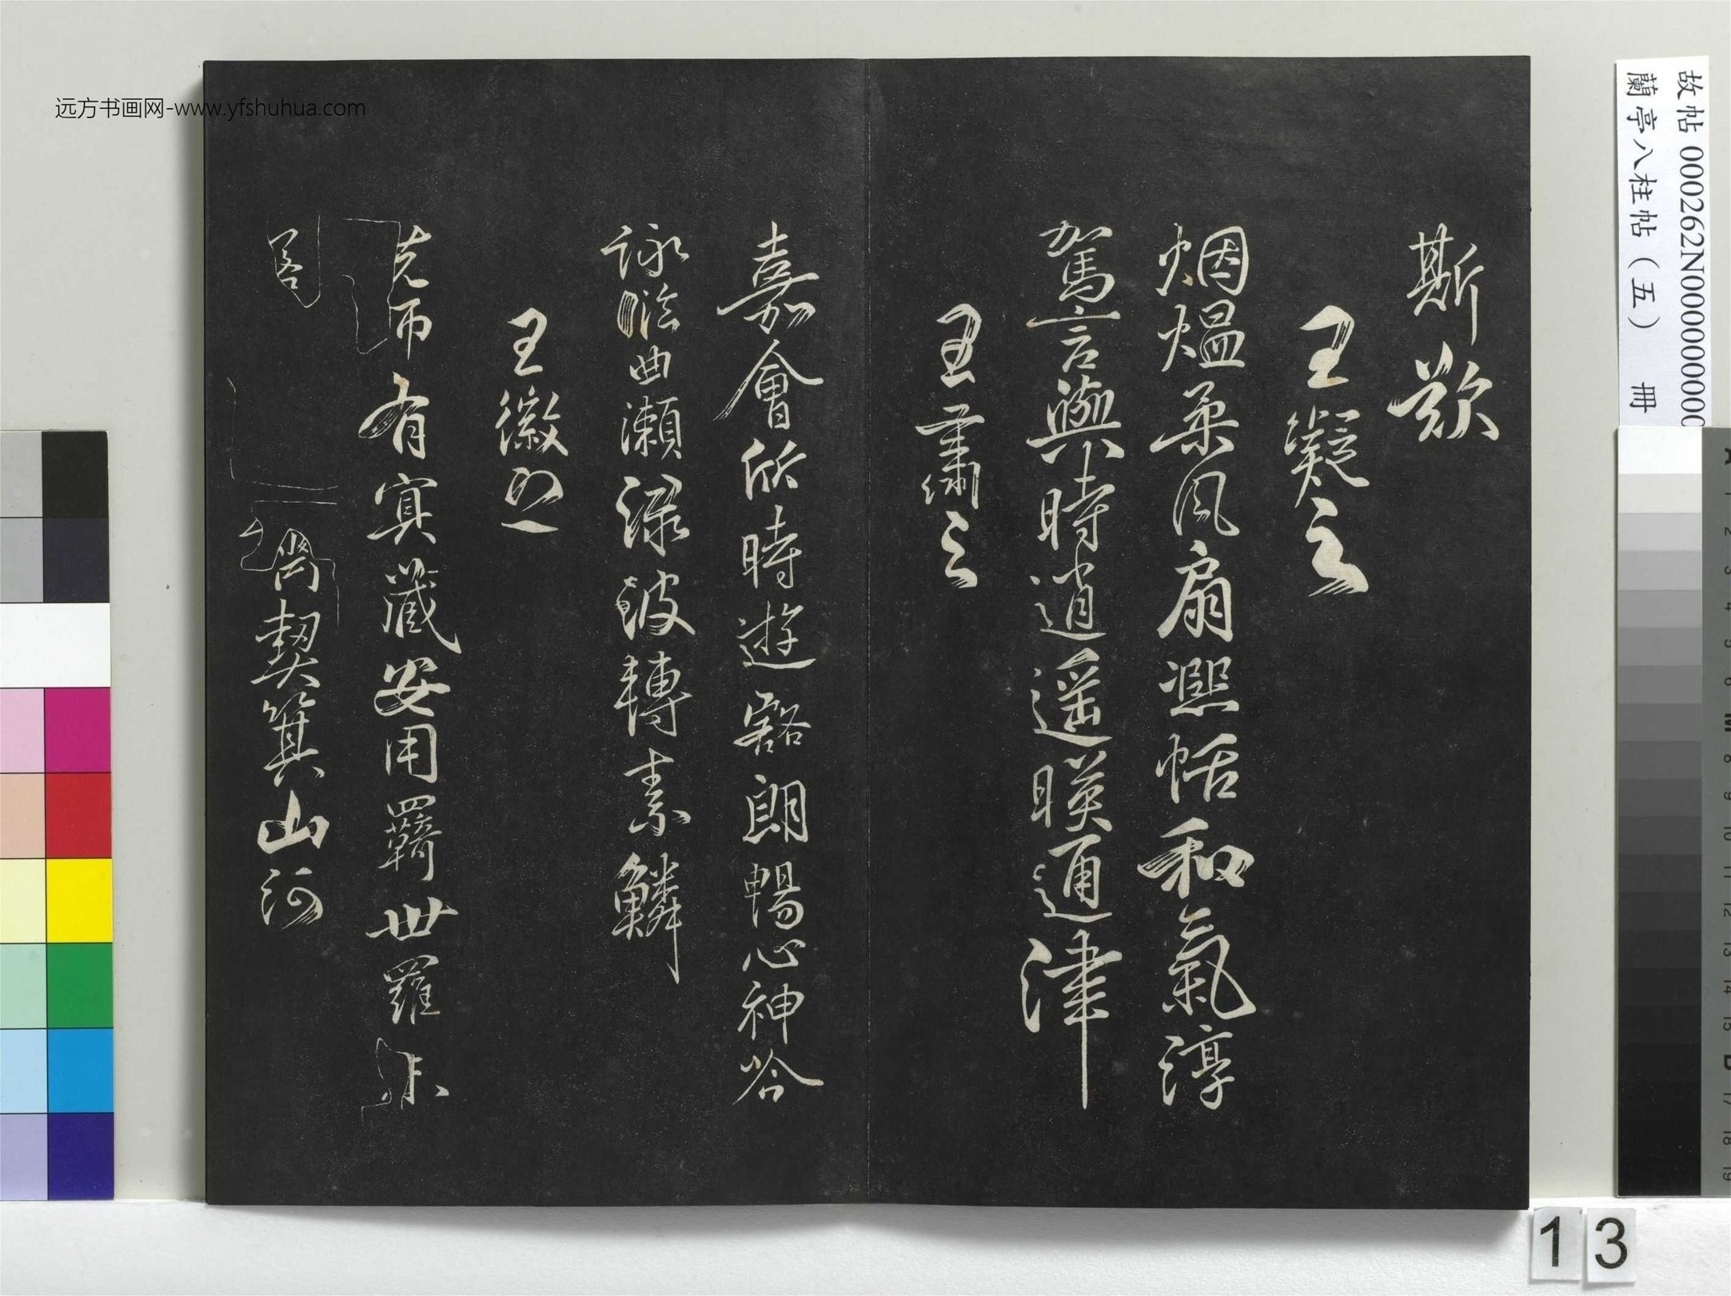 远方书画网-www.yfshuhua.com
斯歎
王凝之
烟熅柔風扇熙恬和氣淳
駕言興時逍遥暎通津
王肅之
嘉會欣時遊豁朗暢心神吟
詠曲瀨淥波轉素鱗
王徽之
先師有冥藏安用羈世羅未
若齊契箕山河
故帖 000262N000000000
蘭亭八柱帖（五） 冊
13